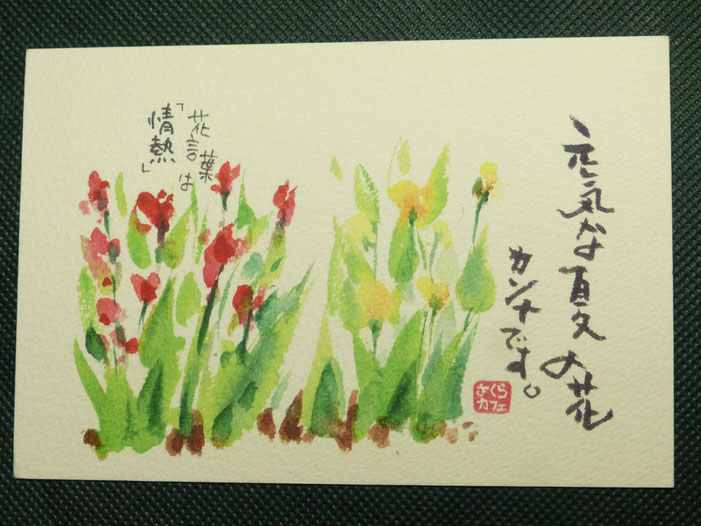 元気な夏の花
カンナです。
花言葉は
「情熱」
さくらカフェ